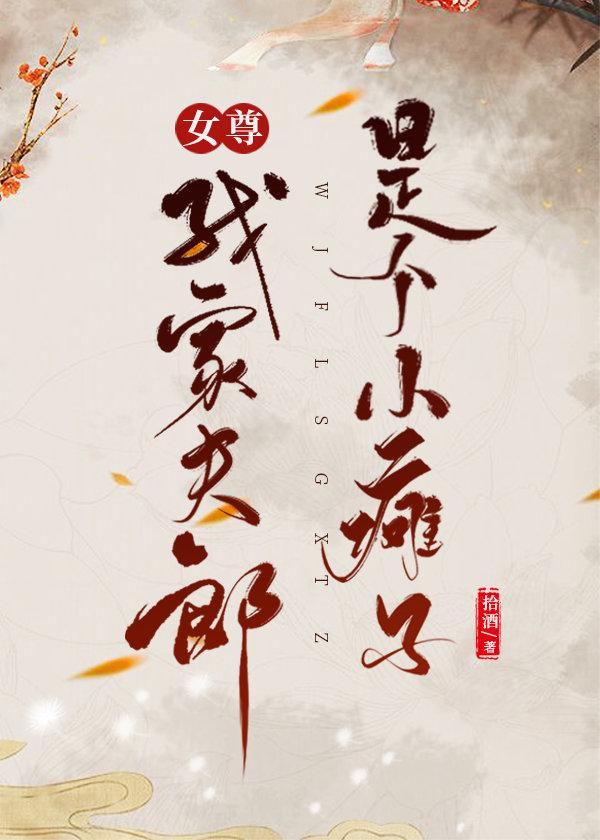 女尊
我家夫郎
是个小瘫子
WJFLSGXTZ
拾酒/著